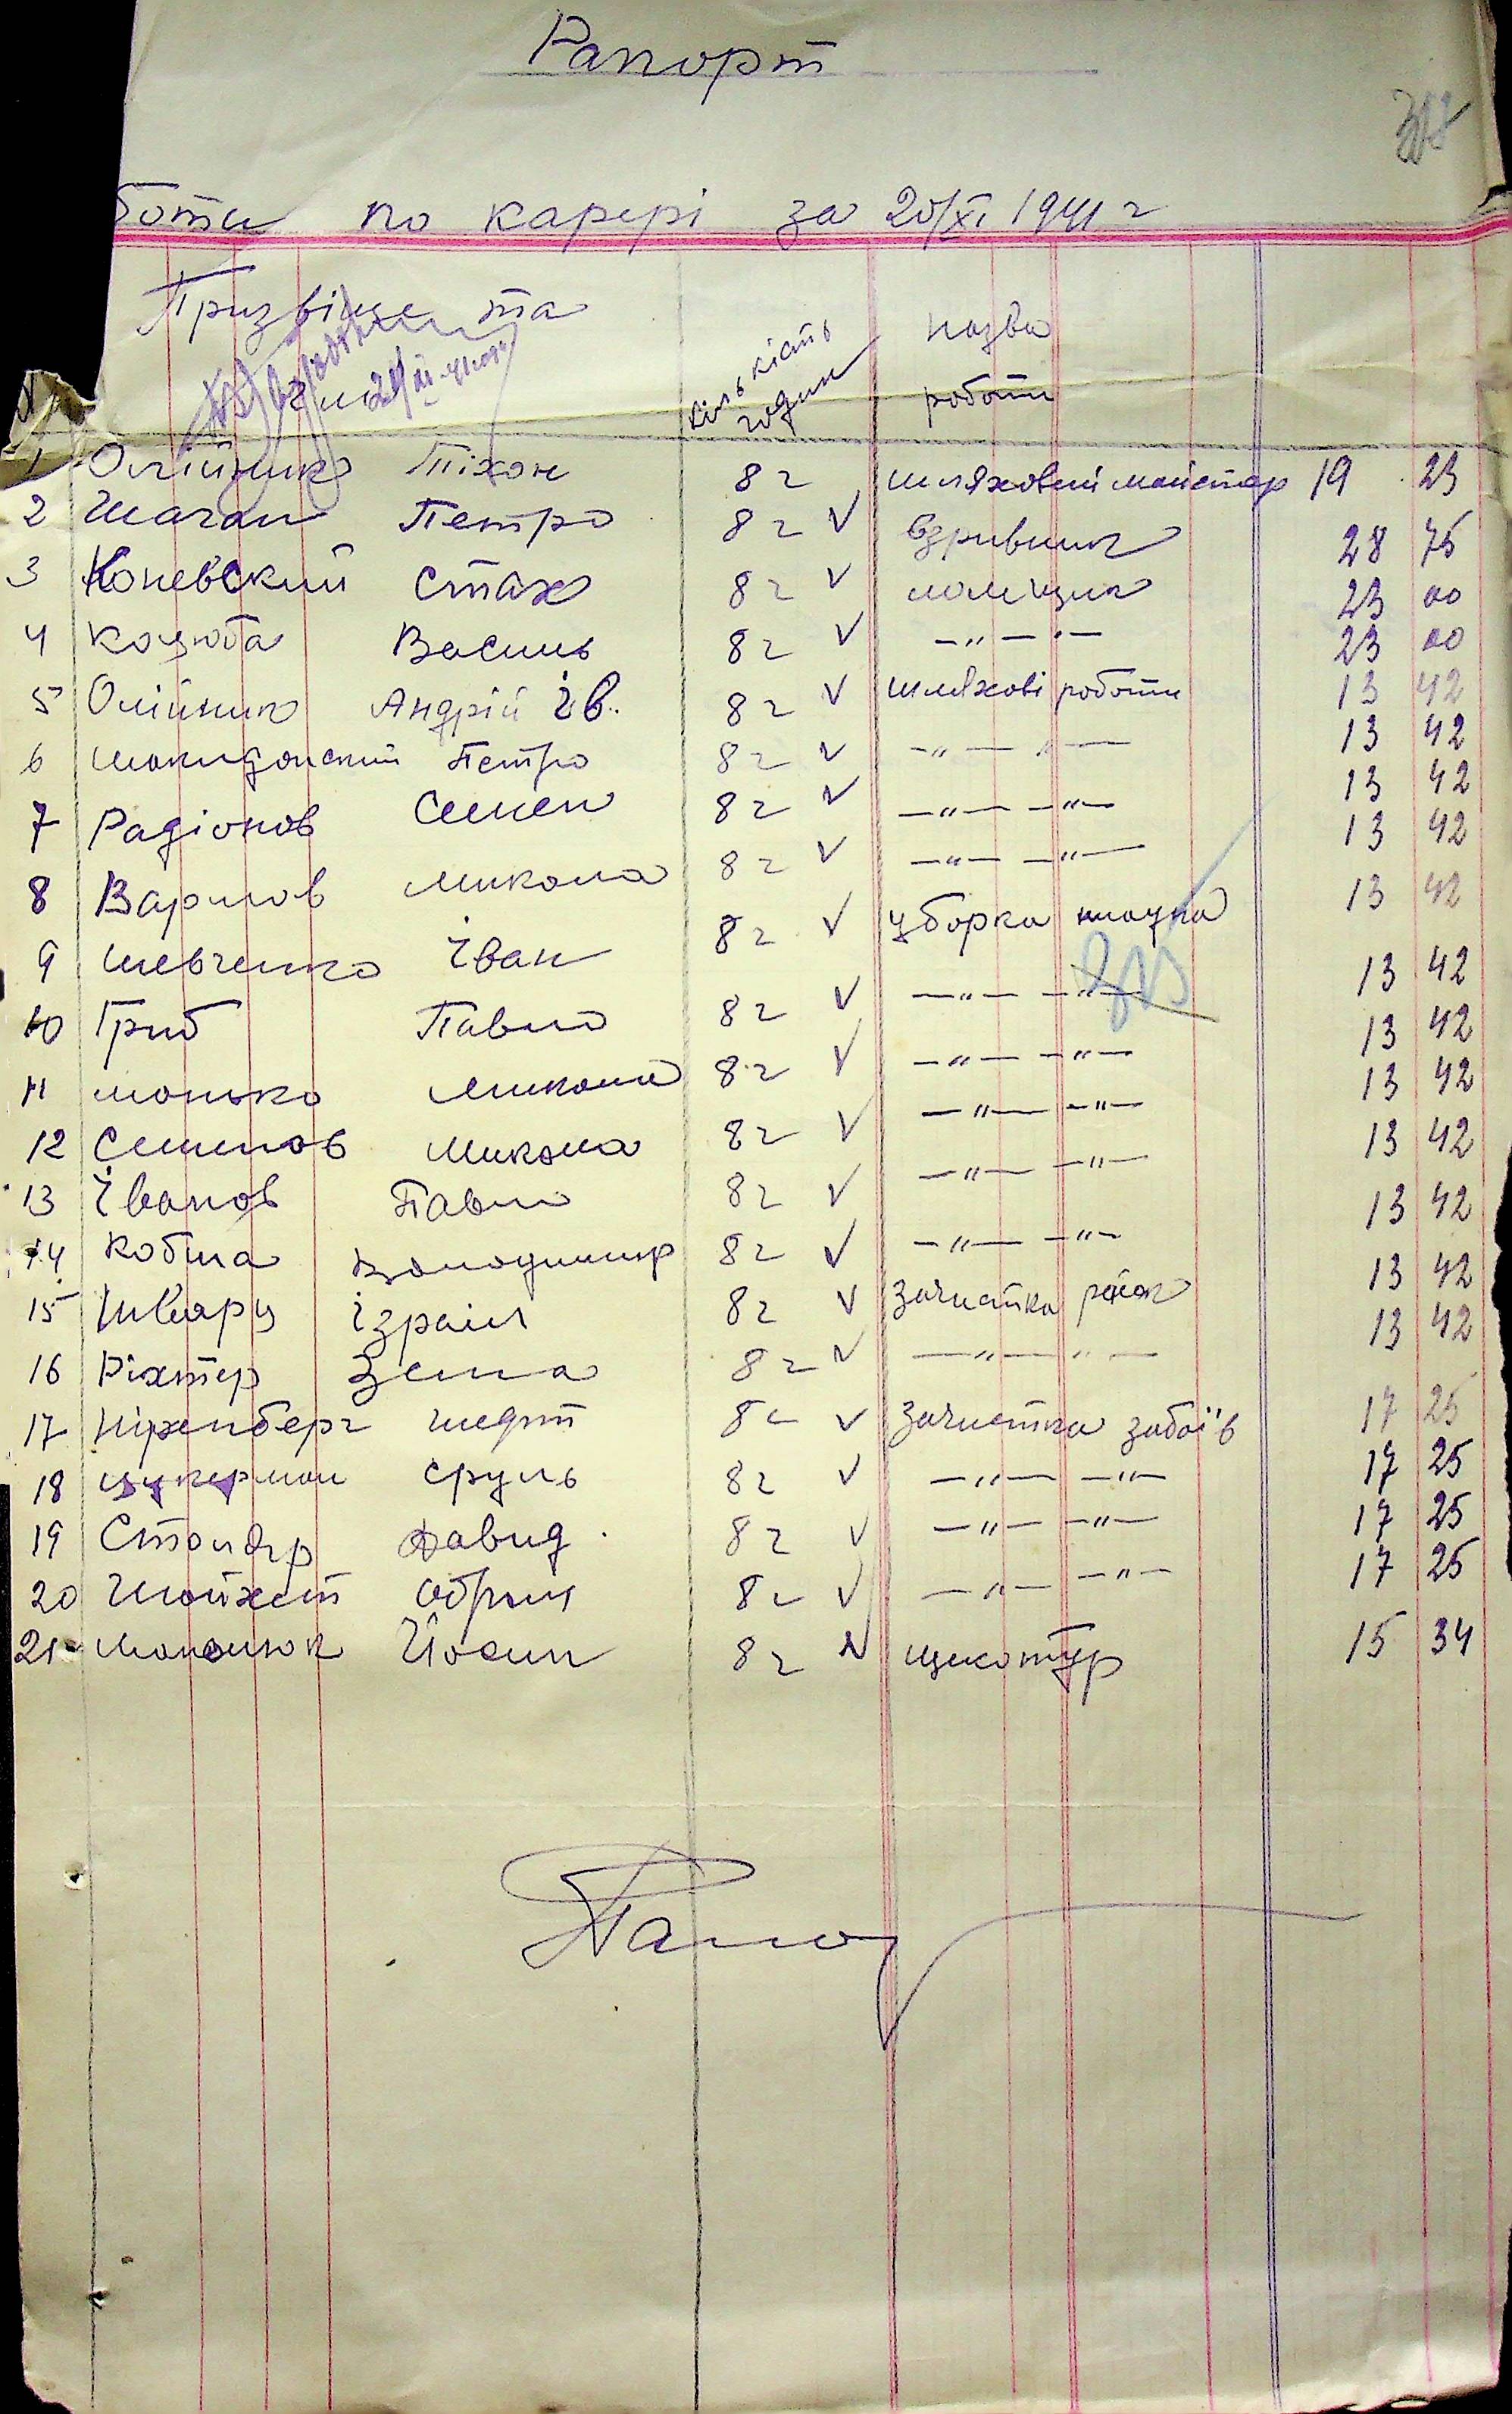 Рапорт
боти по карері за 20/XI 1941 г
Призвіще та
кількість годин
назва
роботи
1 Олійник Тіхон 8 г шляховий майстер 19 23
2 Шаган Петро 8 г V взривник 28 75
3 Коневский Стах 8 г V 23 00
4 Коцюба Василь 8 г V —"— "— 23 00
5 Олійник Андрій Ів. 8 г V шляхові роботи 13 42
6 Петро 8 г V —"— "— 13 42
7 Радіонов Семен 8 г V —"— —"— 13 42
8 Варлов Микола 8 г V —"— —"— 13 42
9 Шевченко Іван 8 г V уборка 13 42
10 Гриб Павло 8 г V —"— —"— 13 42
11 Монько Микола 8 г V —"— —"— 13 42
12 Семенов Микола 8 г V —"— —"— 13 42
13 Іванов Павло 8 г V —"— —"— 13 42
14 Кобила Володимир 8 г V —"— —"— 13 42
15 Шварц Ізраіл 8 г V Зачистка 13 42
16 Ріхтер Зейла 8 г V —"— "— 13 42
17 8 г V Зачистка забоїв 17 25
18 Цукерман Сруль 8 г V —"— —"— 17 25
19 Давид 8 г V —"— —"— 17 25
20 Шойхет 8 г V —"— —"— 17 25
21 Йосип 8 г V щекотур 15 34